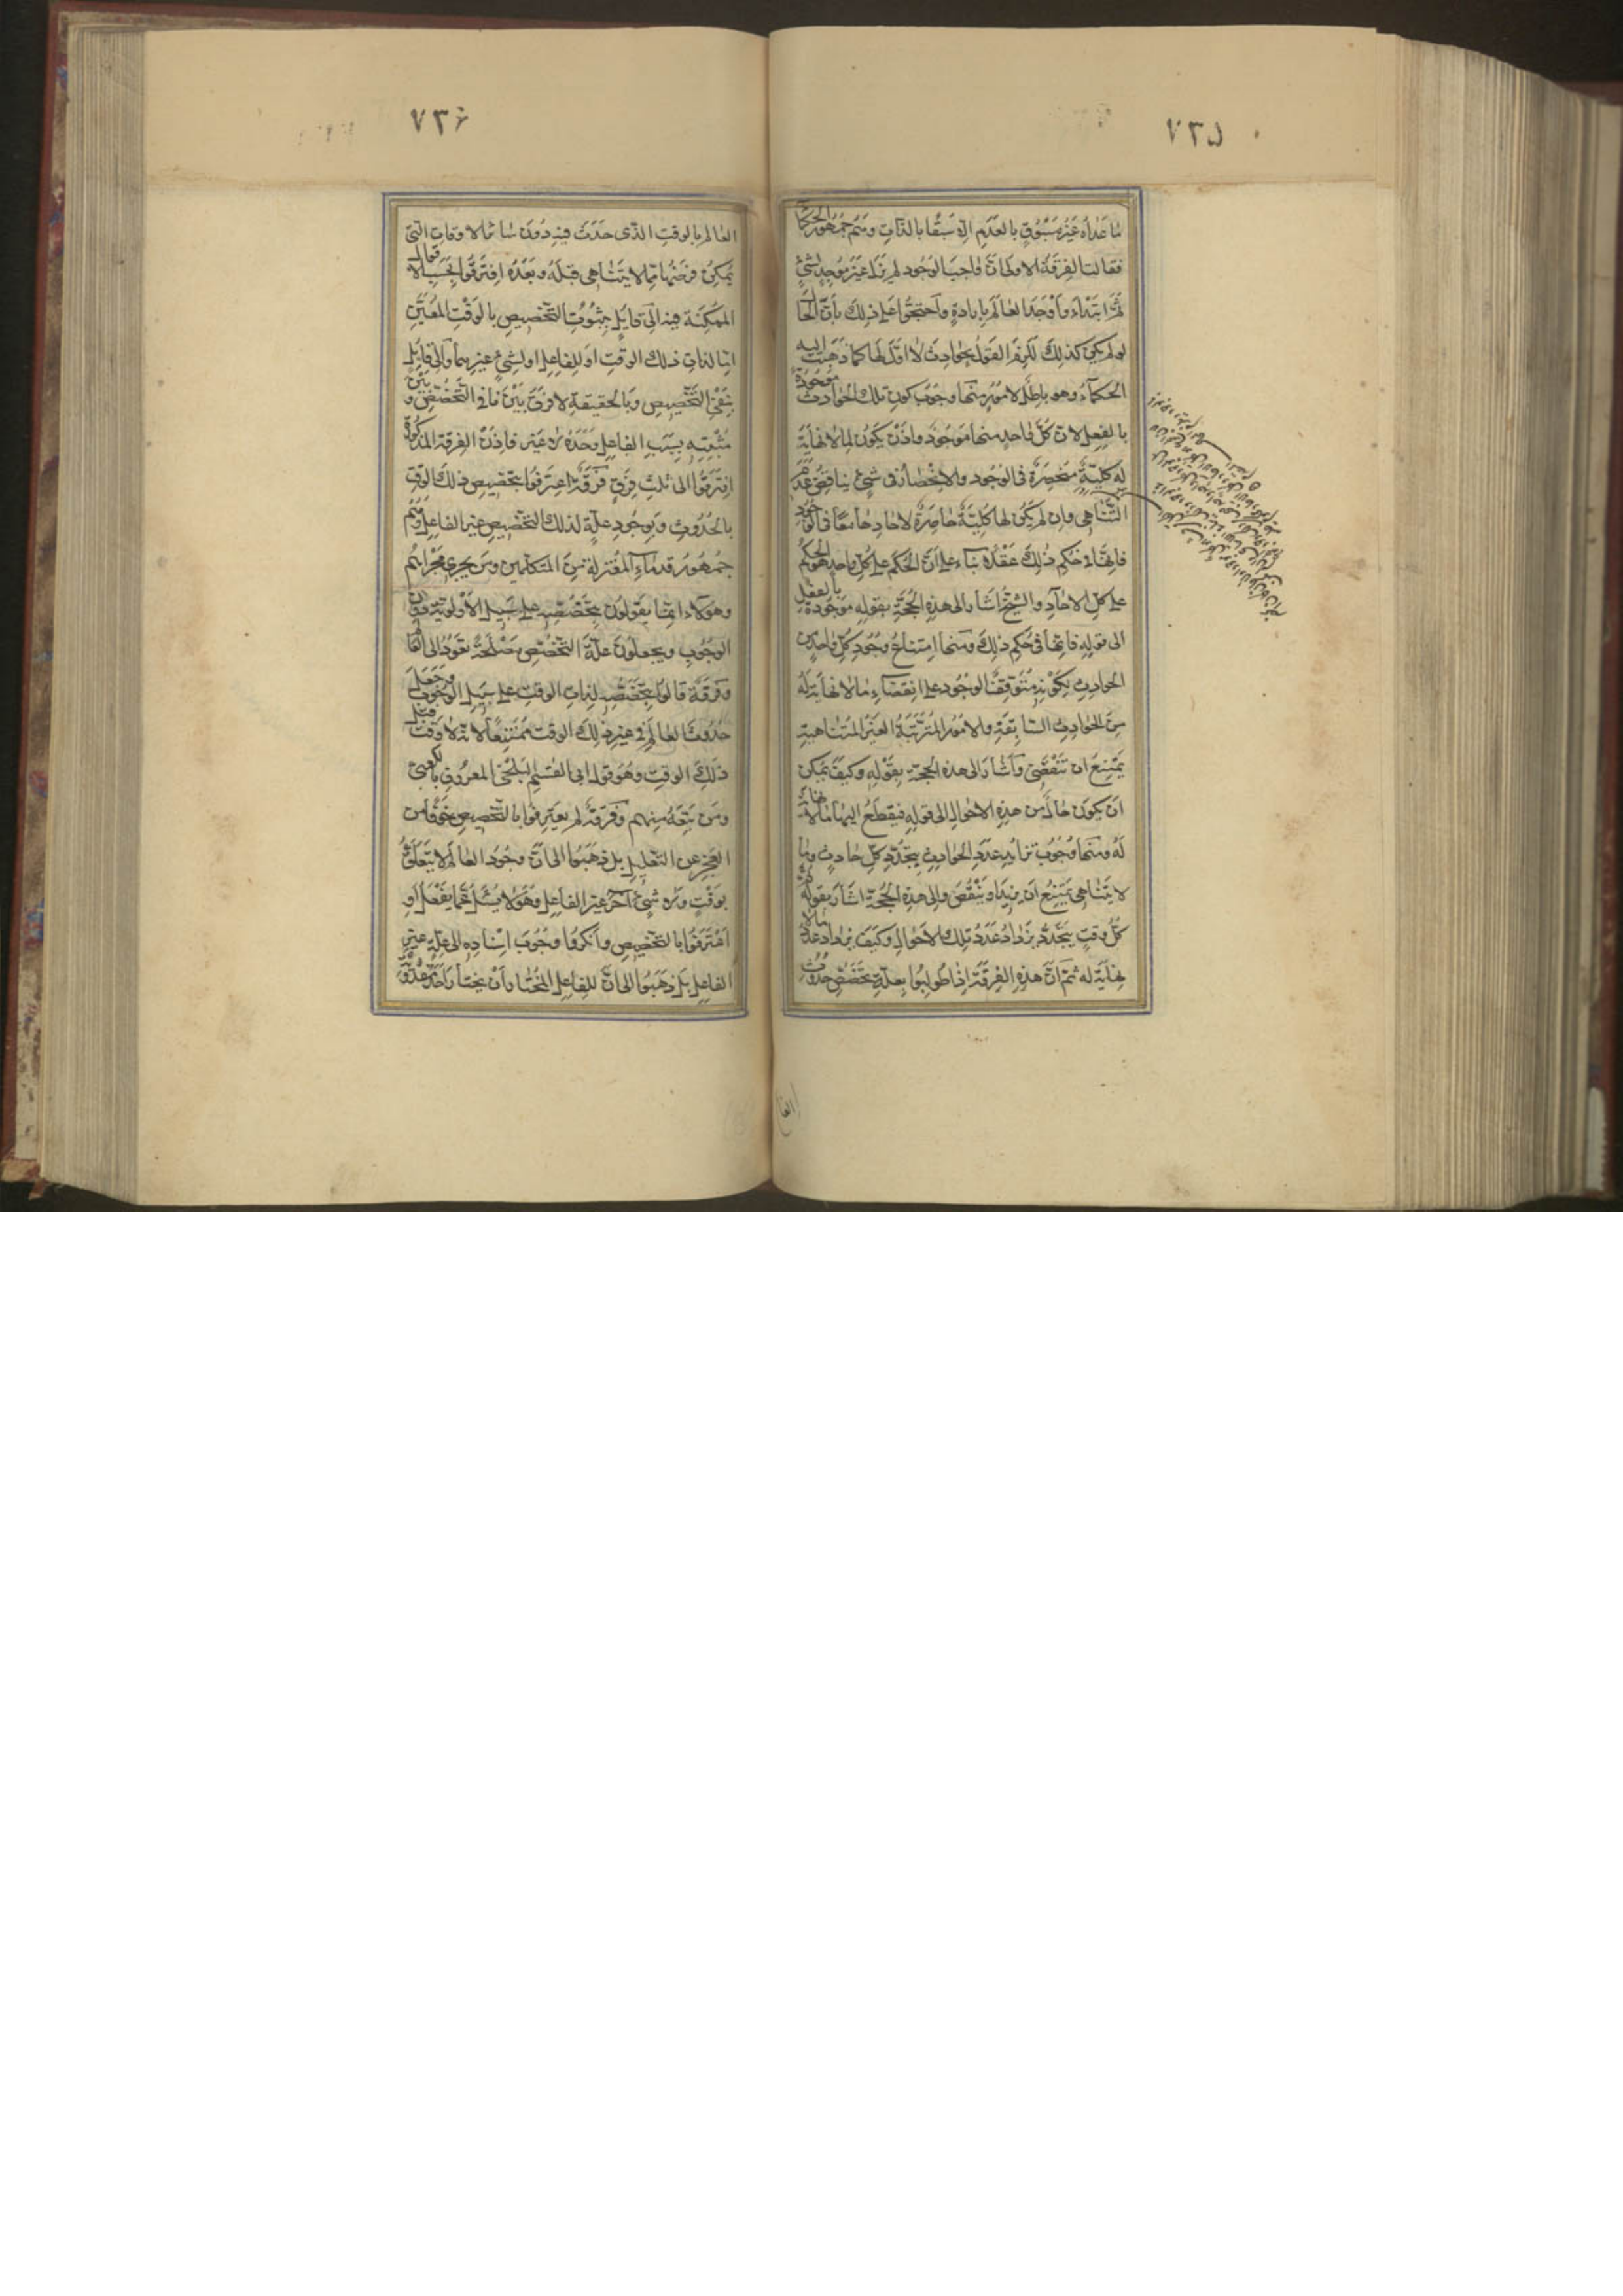 ٧٣٥
ما عداه غير مسبوق بالعدم الا سبقا بالذات ومنهم جمهور الحكما
فقالت الفرقة الاولى ان واجب الوجود لم يزل غير موجد لشئ
ثم ابتداء واوجد العالم بارادة واحتجوا على ذلك بان الحال
لو لم يكن كذلك لكزم القول بحوادث لا اول لها كما ذهبت اليه
الحكماء وهو باطل لامور منها وجوب كون تلك الحوادث موجودة
بالفعل لان كل واحد منها موجود واذن يكون لما لا نهاية
له كلية منحصرة فى الوجود والانحصار فى شئ يناقض عدم
التناهى وان لم يكن لها كلية حاصرة لاحاد جامعا فى الوجود
فانها فى حكم ذلك عقلا بناء على ان الحكم على كل واحد هو الحكم
على كل الاحاد والشيخ اشار الى هذه الحجة بقوله موجودة بالفعل
الى قوله فانها فى حكم ذلك ومنها امتناع وجود كل واحد من
الحوادث لكونه متوقف الوجود على انقضاء ما لا نهاية له
من الحوادث السابقة والامور المترتبة الغير المتناهية
يمتنع ان تنقضى واشار الى هذه الحجة بقوله وكيف يمكن
ان يكون حال من هذه الاحوال الى قوله فيقطع اليها ما لا نهاية
له ومنها وجوب تزايد عدد الحوادث بتجدد كل حادث وما
لا يتناهى يمتنع ان يزيد او ينقص والى هذه الحجة اشار بقوله ثم
كل وقت يتجدد يزداد عدد تلك الاحوال وكيف يزداد عدد ما لا
نهاية له ثم ان هذه الفرقة اذا طولبوا بعلة تخصص حدوث
٧٣۶
العالم بالوقت الذى حدث فيه دون سائر الاوقات التى
يمكن فرضها مما لا يتناهى قبله وبعده افترقوا بحسب الاقوال
الممكنة فيه الى قايل بثبوت التخصيص بالوقت المعين
اما لذات ذلك الوقت او للفاعل او لشئ غيرهما والى قايل
بنفى التخصيص وبالحقيقة لا فرق بين نافى التخصص وبين
مثبتيه بسبب الفاعل وحده لا غير فاذن الفرقة المذكورة
افترقوا الى ثلث فرق فرقة اعترفوا بتخصيص ذلك الوقت
بالحدوث وبوجود علة لذلك التخصيص غير الفاعل وهم
جمهور قدماء المعتزلة من المتكلمين ومن يجرى مجراهم
وهؤلاء انما يقولون بتخصصه على سبيل الاولوية دون
الوجوب ويجعلون علة التخصص مصلحة تعود الى العالم
وفرقة قالوا بتخصصه لذات الوقت على سبيل الوجوب وجعل
حدوث العالم فى غير ذلك الوقت ممتنعا لانه لا وقت قبل
ذلك الوقت وهو قول ابى القسم البلخى المعروف بالكعبى
ومن تبعه منهم وفرقة لم يعترفوا بالتخصيص خوفا من
العجز عن التعليل بل ذهبوا الى ان وجود العالم لا يتعلق
بوقت ولا شئ آخر غير الفاعل وهو لا يسئل عما يفعل او
اعترفوا بالتخصيص وانكروا وجوب اسناده الى علة غير
الفاعل بل ذهبوا الى ان للفاعل المختار ان يختار احد مقدوريه